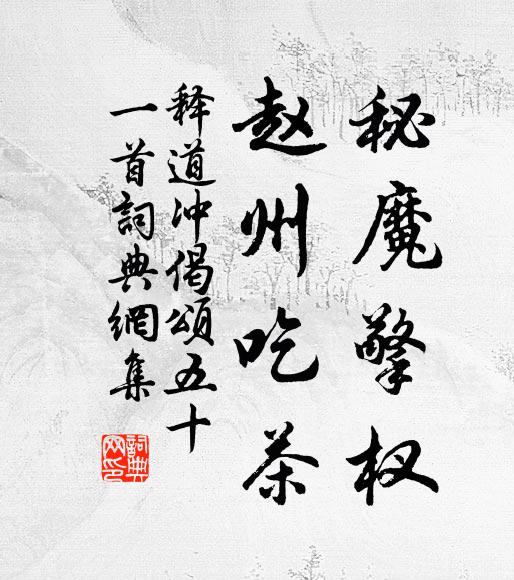 秘魔擎杈
赵州吃茶
释道冲偈颂五十
一首詞典網集
詞典
网印